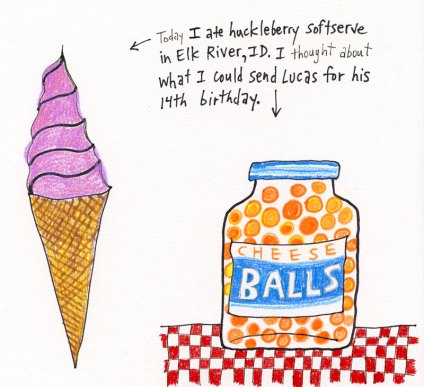 Today I ate huckleberry softserve
in Elk River, ID. I thought about
what I could send Lucas for his
14th birthday.
CHEESE
BALLS